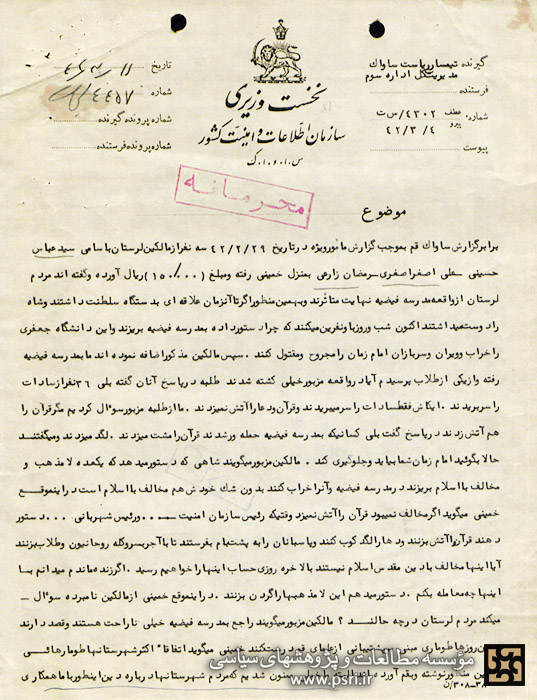 گیرنده تیمسار ریاست ساواک
مدیریت کل اداره سوم
فرستنده
شماره: عطف ۴۳۰۲/س ت
پیرو ۴۲/۳/۴
پیوست
نخست وزیری
سازمان اطلاعات و امنیت کشور
س.ا.و.ا.ک
تاریخ
شماره ۴۴۵۷
شماره پرونده گیرنده
شماره پرونده فرستنده
محرمانه
موضوع
برابر گزارش ساواک قم بموجب گزارش مأمور ویژه در تاریخ ۴۲/۲/۲۹ سه نفر از مالکین لرستان باسامی سید عباس
حسینی - علی اصغر اصغری - رمضان زارعی بمنزل خمینی رفته و مبلغ (۱۵۰/۰۰) ریال آورده و گفته اند مردم
لرستان از واقعه مدرسه فیضیه نهایت متأثرند و بهمین منظور اگر تا آنزمان علاقه ای بدستگاه سلطنت داشتند و شاه
را دوست میداشتند اکنون شب و روز با و نفرین میکنند که چرا دستور داده بمدرسه فیضیه بریزند و این دانشگاه جعفری
را خراب و ویران و سربازان امام زمان را مجروح و مقتول کنند. سپس مالکین مذکور اضافه نموده اند ما بمدرسه فیضیه
رفته و از یکی از طلاب پرسیدم آیا در واقعه مزبور خیلی کشته شدند طلبه در پاسخ آنان گفته بلی ۳۶ نفر از سادات
را سر بریدند. ایکاش فقط سادات را سر میبریدند و قرآن و دعا را آتش نمیزدند. ما از طلبه مزبور سوال کردیم مگر قرآن را
هم آتش زدند در پاسخ گفت بلی کسانیکه بمدرسه فیضیه حمله ور شدند قرآن را مشت میزدند. لگد میزدند و میگفتند
حالا بگوئید امام زمان شما بیاید و جلوگیری کند. مالکین مزبور میگویند شاهی که دستور میدهد که یکعده لا مذهب و
مخالف با اسلام بریزند در مدرسه فیضیه و آنرا خراب کنند بدون شک خودش هم مخالف با اسلام است در اینموقع
خمینی میگوید اگر مخالف نمیبود قرآن را آتش نمیزد وقتیکه رئیس سازمان امنیت ـــ.. و رئیس شهربانی ... دستور
دهند قرآن را آتش بزنند و دعا را لگد کوب کنند و پاسبانان را به پشت بام بفرستند تا با آجر بسر و کله روحانیون و طلاب بزنند
آیا اینها مخالف با دین مقدس اسلام نیستند بالاخره روزی حساب اینها را خواهیم رسید. اگر زنده ماندم میدانم با
اینها چه معامله بکنم. دستور میدهم این لا مذهبها را گردن بزنند. در اینموقع خمینی از مالکین نامبرده سوال -
میکند مردم لرستان در چه حالند؟ مالکین مزبور میگویند راجع بمدرسه فیضیه خیلی ناراحت هستند و قصد دارند
روزها طوماری مبنی بر پشتیبانی از علمای قم درست کنند خمینی میگوید اتفاقا اکثر شهرستانها طومارهائی
نوشته و بقم آورده اند ممنون شدیم که مردم شهرستانها در باره دین اینطور با ما همکاری
مؤسسه مطالعات و پژوهشهای سیاسی
www.psri.ir